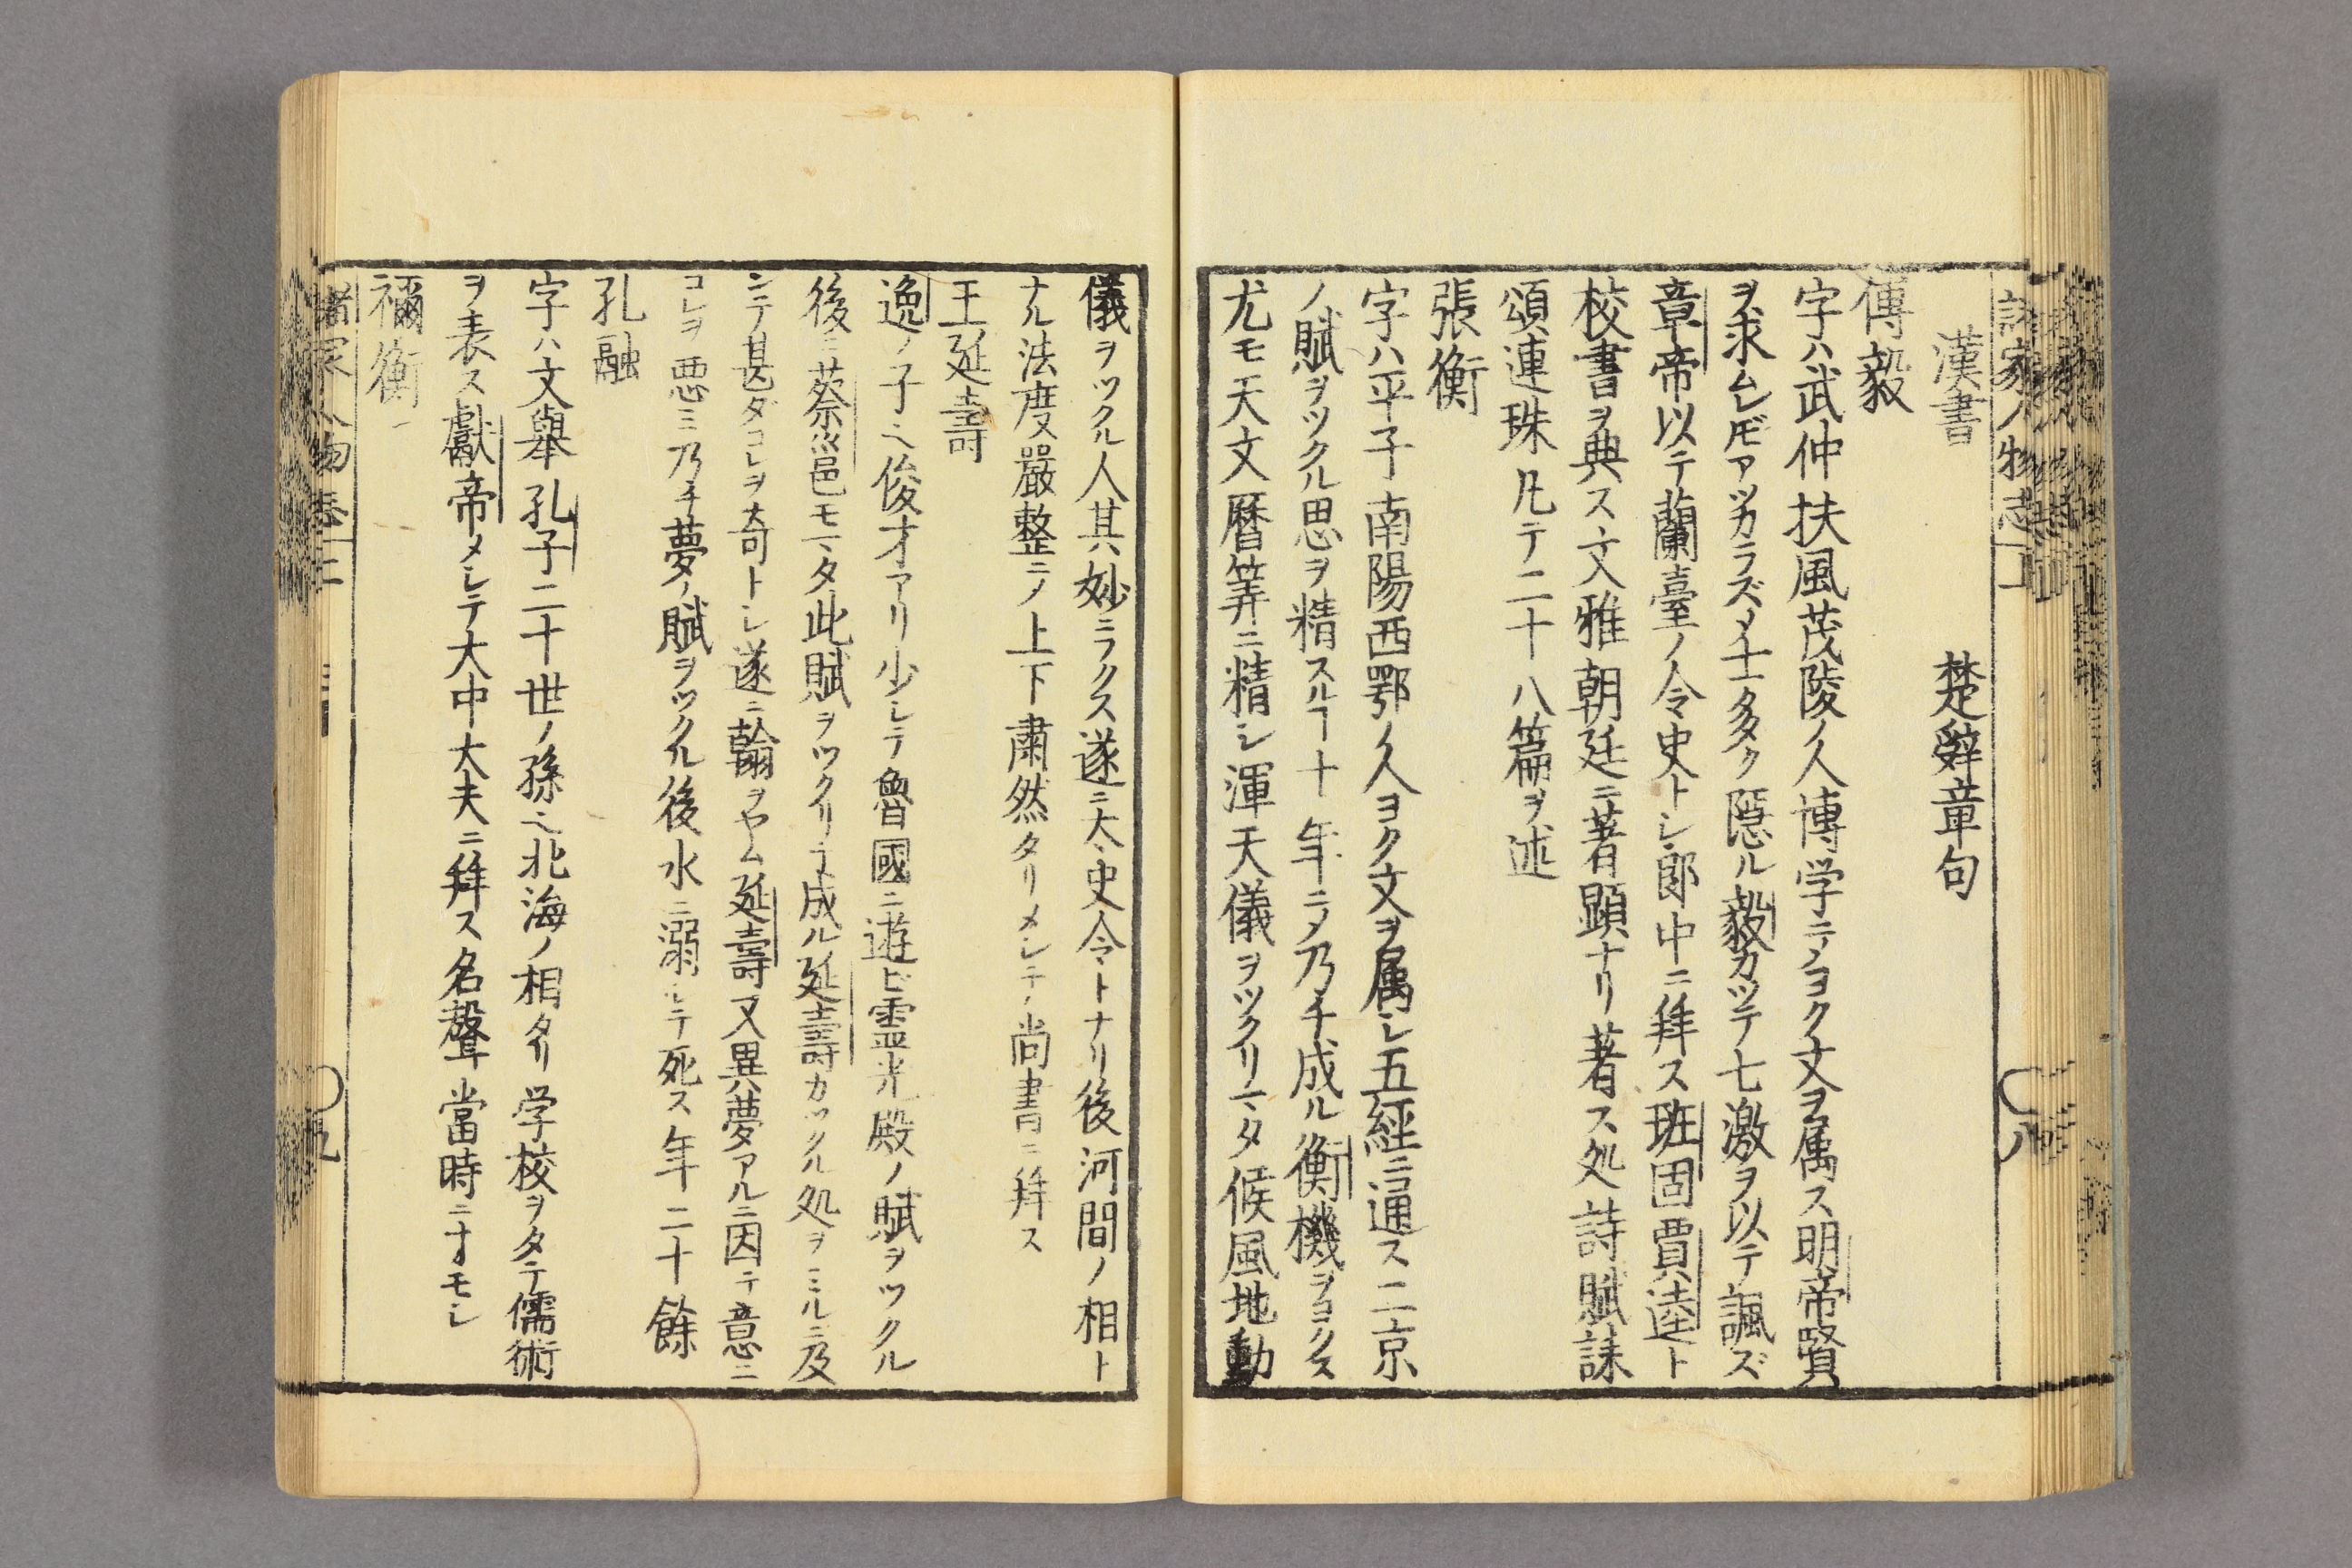 漢書　楚辭章句
傅毅
字ハ武仲扶風茂陵ノ人博学ニノヨク文ヲ属ス明帝賢
ヲ求ムレ𪜈アツカラズノ士多ク隠ル毅カツテ七激ヲ以テ諷ズ
章帝以テ蘭臺ノ令史トシ郎中ニ拜ス班固賈逵ト
校書ヲ典ス文雅朝廷ニ著顕ナリ著ス処詩賦誄
頌連珠凡テ二十八篇ヲ述
張衡
字ハ平子南陽西鄂ノ人ヨク文ヲ属シ五經ニ通ス二京
ノ賦ヲツクル思ヲ精スルヿ十年ニノ乃チ成ル衡機ヲヨクス
尤モ天文暦筭ニ精シ渾天儀ヲツクリマタ候風地動
儀ヲツクル人其妙ニフクス遂ニ太史令トナリ後河間ノ相ト
ナル法度嚴整ニノ上下肅然タリメシテ尚書ニ拜ス
王延壽
逸ノ子也俊才アリ少シテ魯國ニ遊ビ霊光殿ノ賦ヲツクル
後ニ蔡邕モマタ此賦ヲツクリテ成ル延壽カツクル処ヲミルニ及
ンテ甚ダコレヲ奇トシ遂ニ翰ヲヤム延壽又異夢アルニ因テ意ニ
コレヲ悪ミ乃チ夢ノ賦ヲツクル後水ニ溺レテ死ス年二十餘
孔融
字ハ文舉孔子二十世ノ孫也北海ノ相タリ学校ヲタテ儒術
ヲ表ス獻帝メシテ大中大夫ニ拜ス名聲當時ニオモシ
禰衡
諸家人物志上